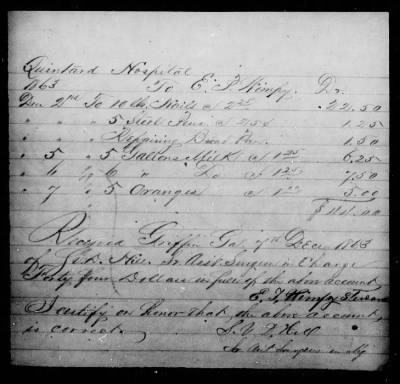 Quintard Hospital
1863 To E. T. Kimpy. Dr.
Dec. 2nd To 10 lb. Nails at 2 25 22.50
" " " 5 Steel Pens at 25¢ 1.25
" " " Repairing 1.50
" 5 " 5 Gallons Milk at 1 25 6.25
" 6 " 6 " Do at 1 25 7.50
" 7 " 5 Oranges at 1 00 5.00
$44.00
Received Griffin Ga. 7th Dec. 1863
of Hill Sr Asst Surgeon in Charge
Forty four Dollars in full of the above account.
E. T. Kimpy Steward
I certify on honor that the above account
is correct. Hill
Sr Asst Surgeon in chg